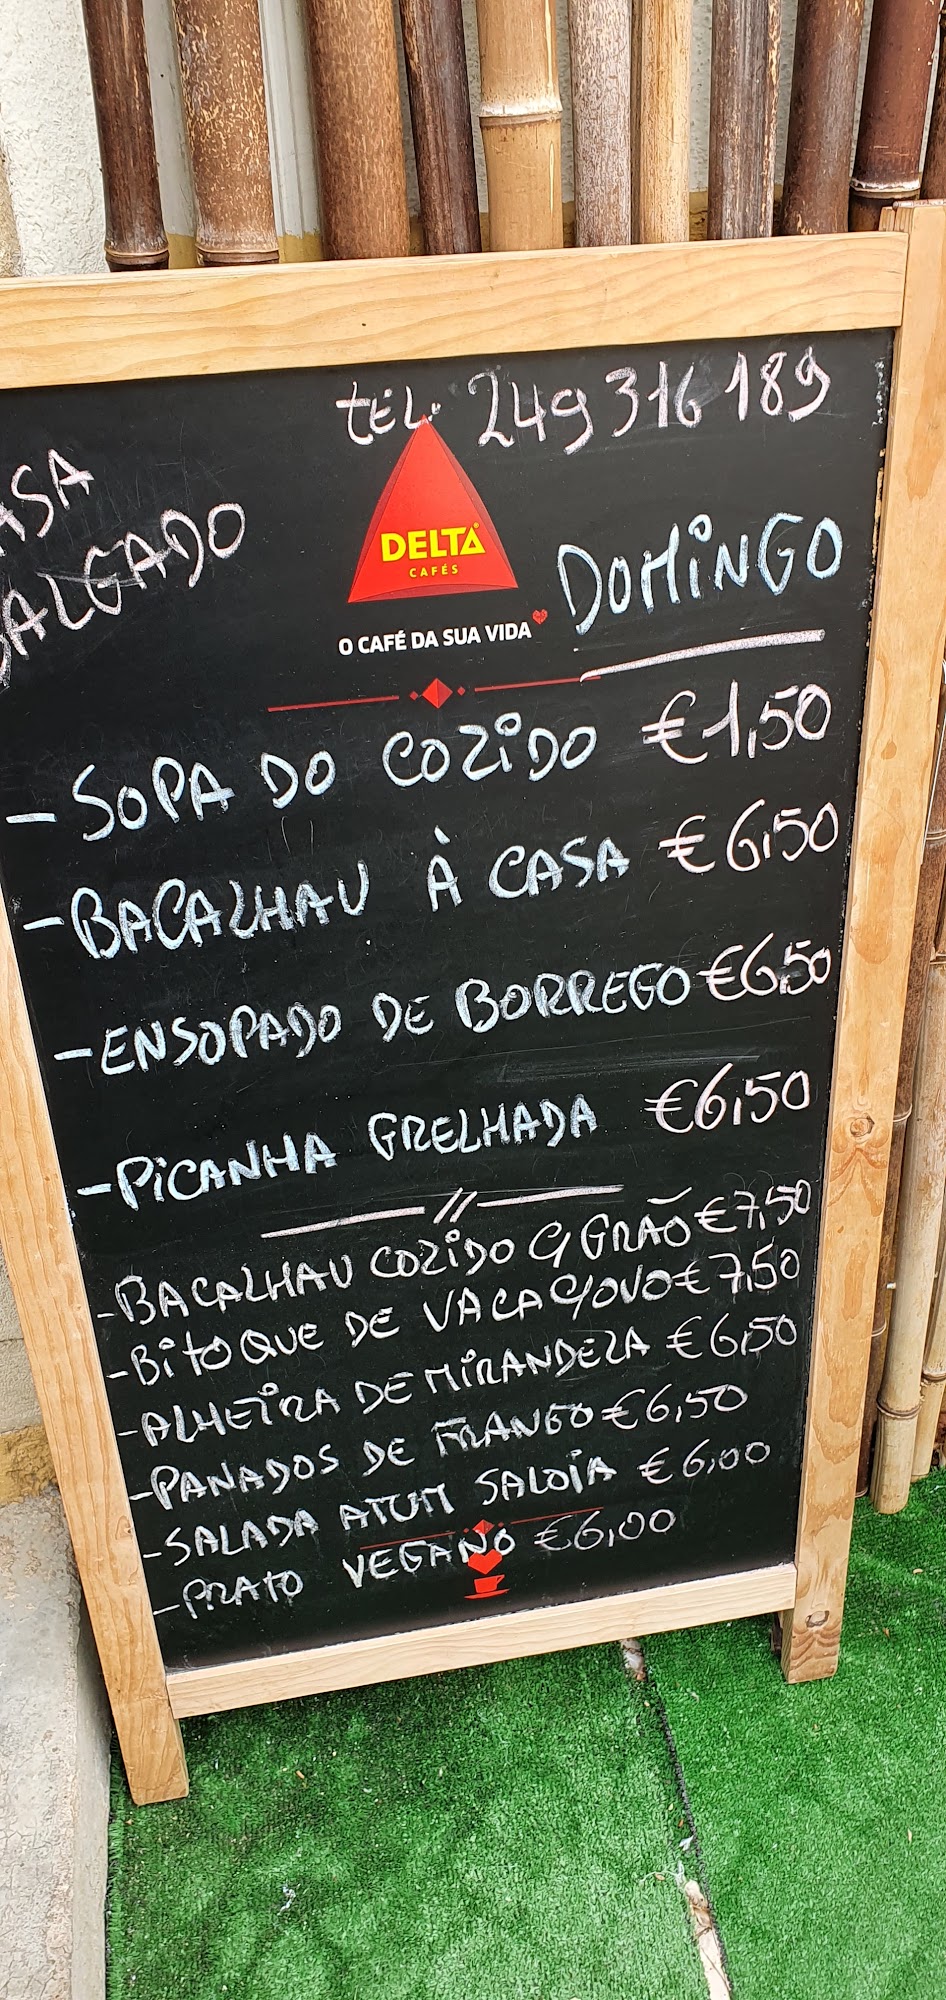 TEL. 249 316 189
ASA
ALGADO
DELTA
CAFÉS
O CAFÉ DA SUA VIDA
DOMINGO
- SOPA DO COZIDO €1,50
- BACALHAU À CASA €6,50
- ENSOPADO DE BORREGO €6,50
- PICANHA GRELHADA €6,50
//
- BACALHAU COZIDO C/ GRÃO €7,50
- BITOQUE DE VACA C/OVO €7,50
- ALHEIRA DE MIRANDEZA €6,50
- PANADOS DE FRANGO €6,50
- SALADA ATUM SALOIA €6,00
- PRATO VEGANO €6,00